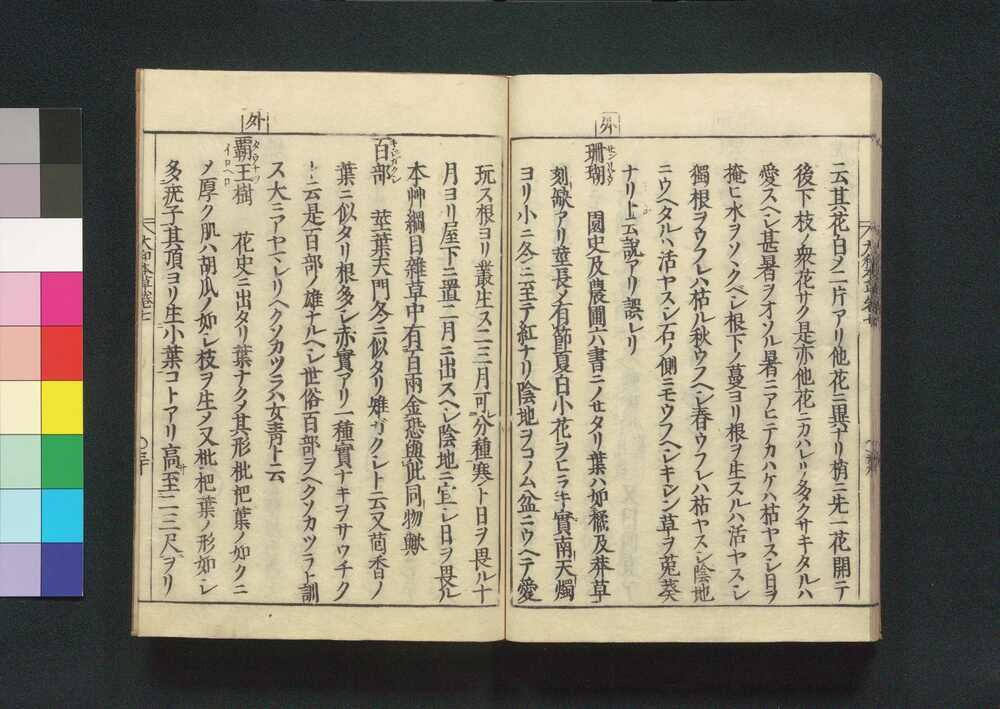 ニ云其花白メ二片アリ他花ニ異ナリ梢ニ先一花開テ
後下枝ノ衆花サク是亦他花ニカハレリ多クサキタルハ
愛スヘシ甚暑ヲオソル暑ニアヒテカハケハ枯ヤスシ日ヲ
掩ヒ水ヲソヽクベシ根下ノ蔓ヨリ根ヲ生スルハ活ヤスシ
獨根ヲウフレハ枯ル秋ウフヘシ春ウフレハ枯ヤスシ陰地
ニウヘタルハ活ヤスシ石ノ側ニモウフヘシキンシン草ヲ菟葵
ナリト云説アリ誤レリ
外
珊瑚 園史及農圃六書ニノセタリ葉ハ如橘及莽草
刻缺アリ莖長メ有節夏白小花ヲヒラキ實南天燭
ヨリ小ニ冬ニ至テ紅ナリ陰地ヲコノム盆ニウヘテ愛
玩ス根ヨリ叢生ス二三月可分種寒ト日ヲ畏ル十
月ヨリ屋下ニ置二月ニ出スヘシ陰地ニ宜シ日ヲ畏ル
本艸綱目雜草中有百兩金恐與此同物歟
外
百部 莖葉天門冬ニ似タリ雉カクシト云又茴香ノ
葉ニ似タリ根多シ赤實アリ一種實ナキヲサウチク
ト云是百部ノ雄ナルヘシ世俗百部ヲヘクソカツラト訓
ス大ニアヤマレリヘクソカツラハ女青ト云
覇王樹 花史ニ出タリ葉ナクメ其形枇杷葉ノ如クニ
メ厚ク肌ハ胡瓜ノ如シ枝ヲ生メ又枇杷葉ノ形如シ
多疣子其頂ヨリ生小葉コトアリ高至二三尺ヲリ
大和本草卷七